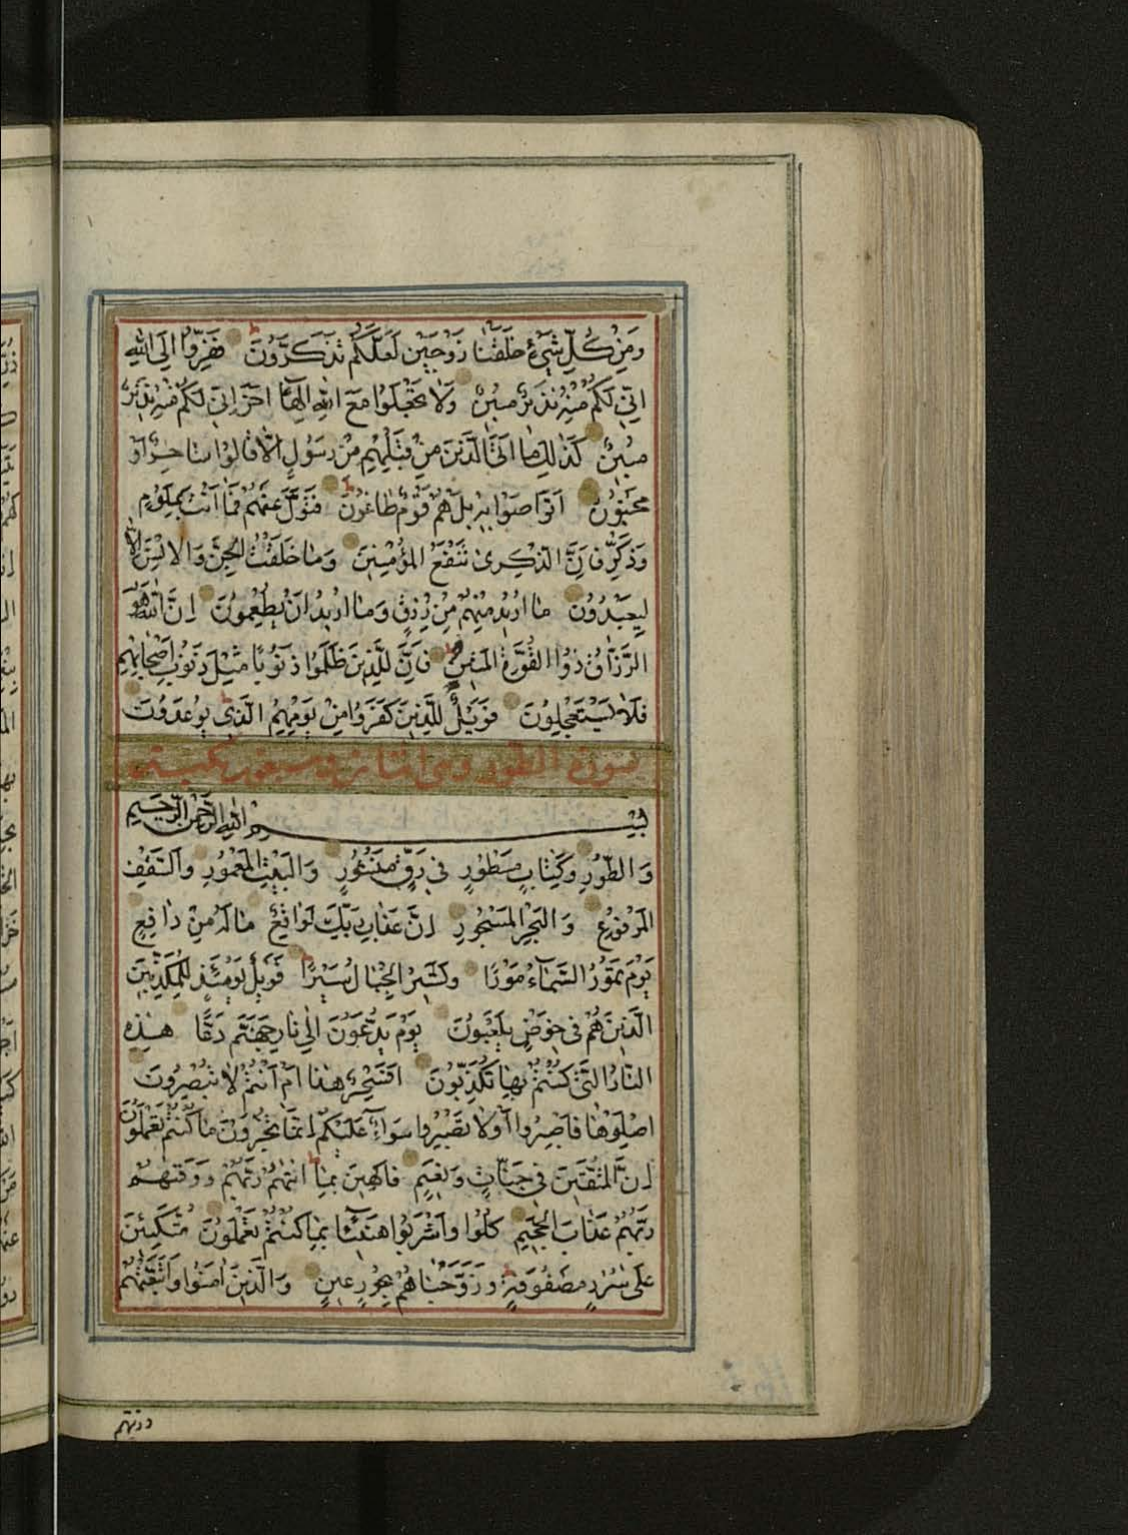 وَمِنْ كُلِّ شَيْءٍ خَلَقْنَا زَوْجَيْنِ لَعَلَّكُمْ تَذَكَّرُونَ فَفِرُّوا إِلَى اللَّهِ
إِنِّي لَكُمْ مِنْهُ نَذِيرٌ مُبِينٌ وَلَا تَجْعَلُوا مَعَ اللَّهِ إِلَهًا آخَرَ إِنِّي لَكُمْ مِنْهُ نَذِيرٌ
مُبِينٌ كَذَلِكَ مَا أَتَى الَّذِينَ مِنْ قَبْلِهِمْ مِنْ رَسُولٍ إِلَّا قَالُوا سَاحِرٌ أَوْ
مَجْنُونٌ أَتَوَاصَوْا بِهِ بَلْ هُمْ قَوْمٌ طَاغُونَ فَتَوَلَّ عَنْهُمْ فَمَا أَنْتَ بِمَلُومٍ
وَذَكِّرْ فَإِنَّ الذِّكْرَى تَنْفَعُ الْمُؤْمِنِينَ وَمَا خَلَقْتُ الْجِنَّ وَالْإِنْسَ إِلَّا
لِيَعْبُدُونِ مَا أُرِيدُ مِنْهُمْ مِنْ رِزْقٍ وَمَا أُرِيدُ أَنْ يُطْعِمُونِ إِنَّ اللَّهَ هُوَ
الرَّزَّاقُ ذُو الْقُوَّةِ الْمَتِينُ فَإِنَّ لِلَّذِينَ ظَلَمُوا ذَنُوبًا مِثْلَ ذَنُوبِ أَصْحَابِهِمْ
فَلَا يَسْتَعْجِلُونِ فَوَيْلٌ لِلَّذِينَ كَفَرُوا مِنْ يَوْمِهِمُ الَّذِي يُوعَدُونَ
سورة الطور وهي
بِسْمِ اللَّهِ الرَّحْمَنِ الرَّحِيمِ
وَالطُّورِ وَكِتَابٍ مَسْطُورٍ فِي رَقٍّ مَنْشُورٍ وَالْبَيْتِ الْمَعْمُورِ وَالسَّقْفِ
الْمَرْفُوعِ وَالْبَحْرِ الْمَسْجُورِ إِنَّ عَذَابَ رَبِّكَ لَوَاقِعٌ مَا لَهُ مِنْ دَافِعٍ
يَوْمَ تَمُورُ السَّمَاءُ مَوْرًا وَتَسِيرُ الْجِبَالُ سَيْرًا فَوَيْلٌ يَوْمَئِذٍ لِلْمُكَذِّبِينَ
الَّذِينَ هُمْ فِي خَوْضٍ يَلْعَبُونَ يَوْمَ يُدَعُّونَ إِلَى نَارِ جَهَنَّمَ دَعًّا هَذِهِ
النَّارُ الَّتِي كُنْتُمْ بِهَا تُكَذِّبُونَ أَفَسِحْرٌ هَذَا أَمْ أَنْتُمْ لَا تُبْصِرُونَ
اصْلَوْهَا فَاصْبِرُوا أَوْ لَا تَصْبِرُوا سَوَاءٌ عَلَيْكُمْ إِنَّمَا تُجْزَوْنَ مَا كُنْتُمْ تَعْمَلُونَ
إِنَّ الْمُتَّقِينَ فِي جَنَّاتٍ وَنَعِيمٍ فَاكِهِينَ بِمَا آتَاهُمْ رَبُّهُمْ وَوَقَاهُمْ
رَبُّهُمْ عَذَابَ الْجَحِيمِ كُلُوا وَاشْرَبُوا هَنِيئًا بِمَا كُنْتُمْ تَعْمَلُونَ مُتَّكِئِينَ
عَلَى سُرُرٍ مَصْفُوفَةٍ وَزَوَّجْنَاهُمْ بِحُورٍ عِينٍ وَالَّذِينَ آمَنُوا وَاتَّبَعَتْهُمْ
ذريتهم